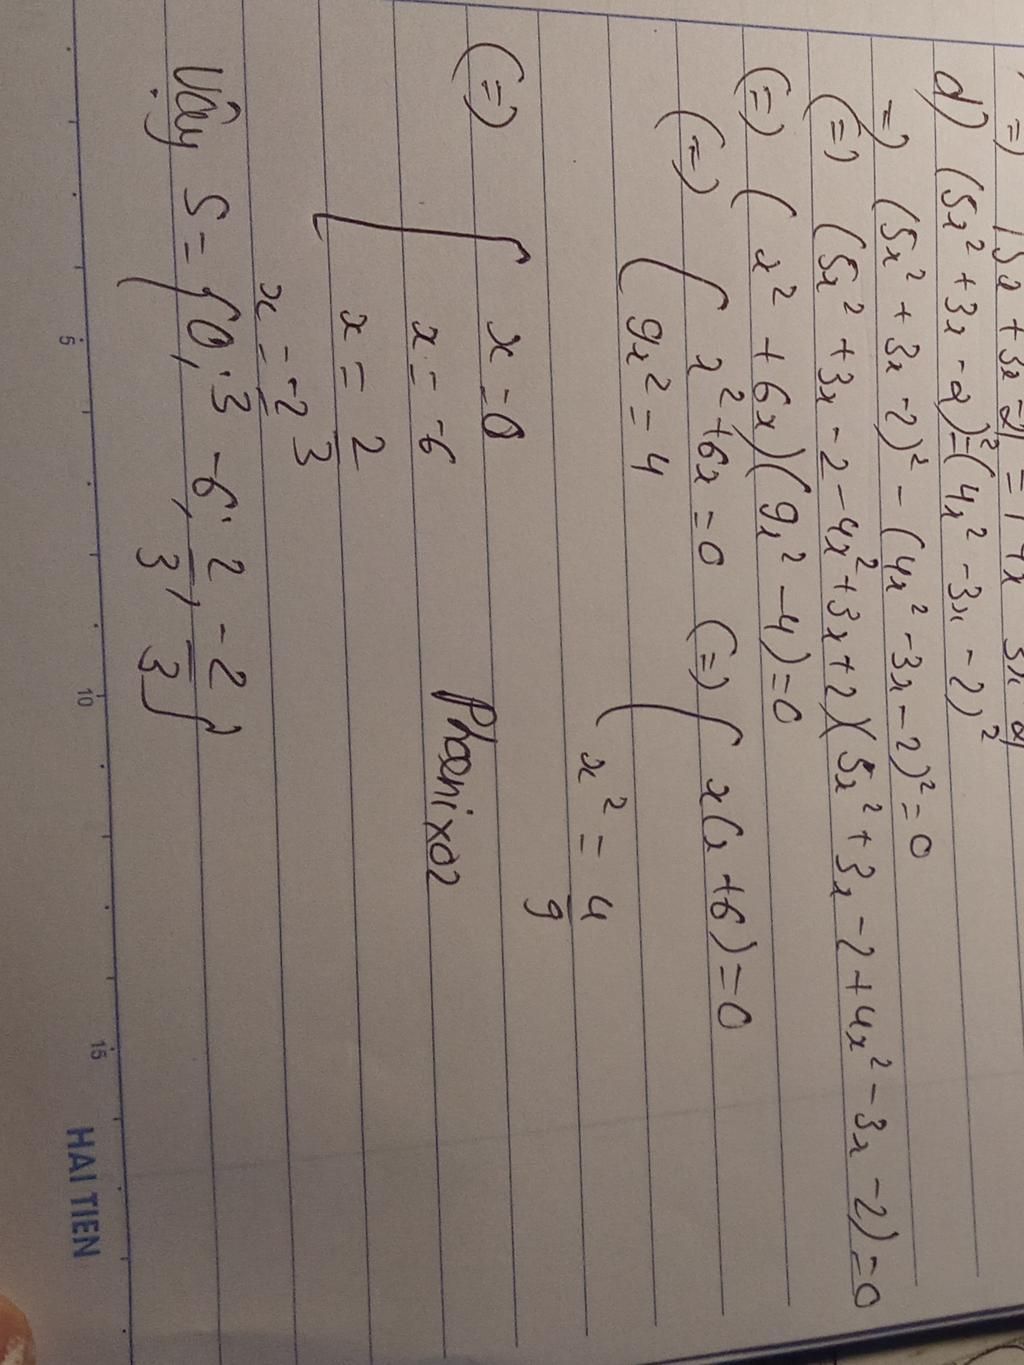 d) (5x² + 3x - 2)² = (4x² - 3x - 2)²
=) (5x² + 3x - 2)² - (4x² - 3x - 2)² = 0
(=) (5x² + 3x - 2 - 4x² + 3x + 2)(5x² + 3x - 2 + 4x² - 3x - 2) = 0
(=) (x² + 6x)(9x² - 4) = 0
(=) [ x² + 6x = 0 (=) [ x(x + 6) = 0
9x² = 4
x² = 4/9
(=) [ x = 0
x = -6
x = 2/3
x = -2/3
Phoenix02
Vậy S = {0; -6; 2/3; -2/3}
5
10
15
HAI TIEN